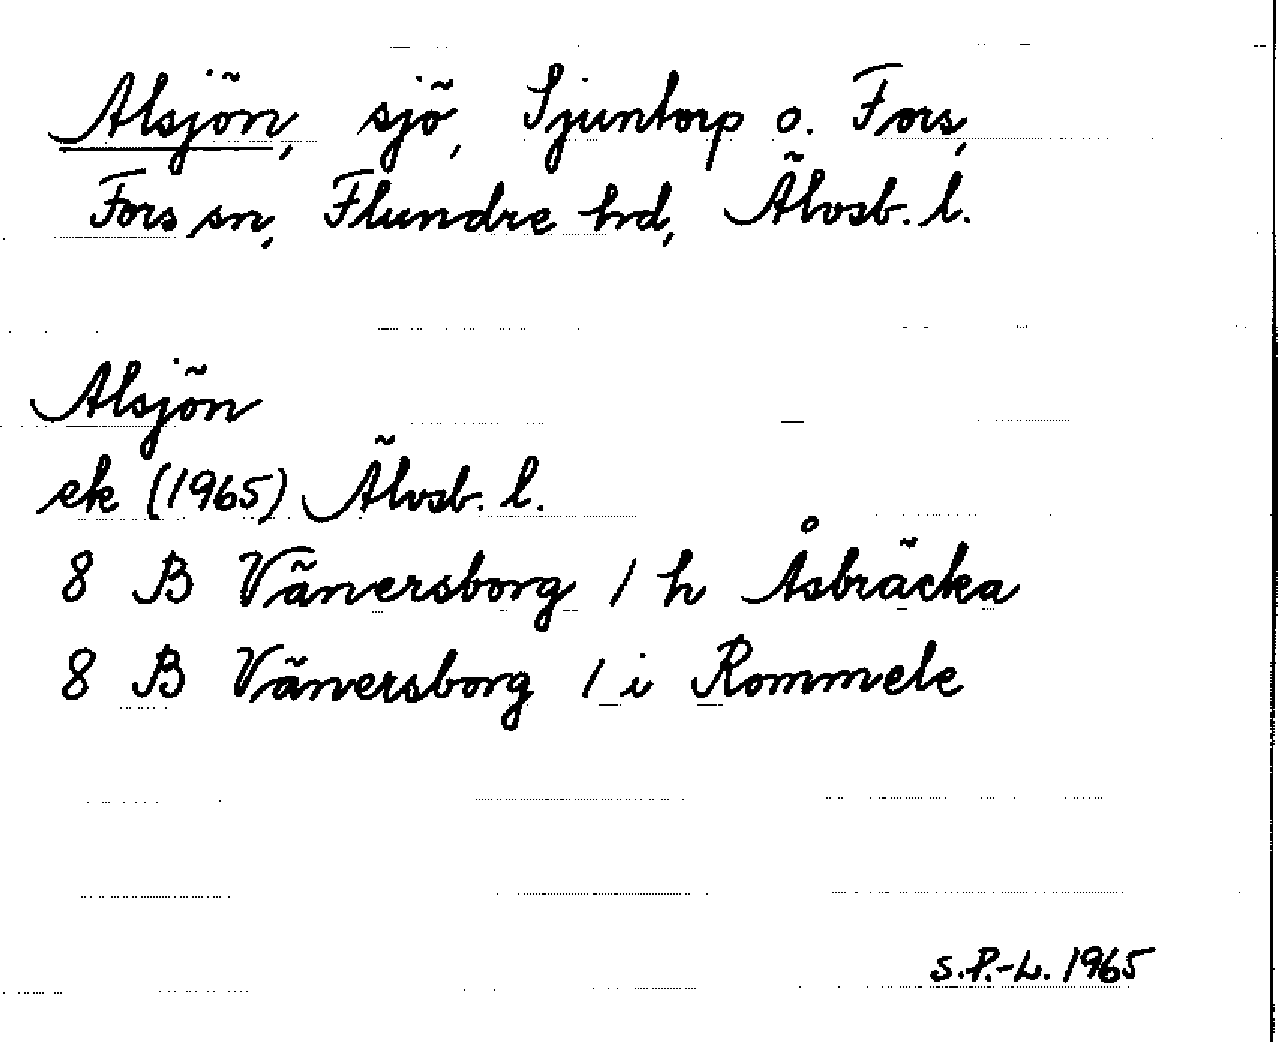 Alsjön, sjö, Sjuntorp o. Fors,
Fors sn, Flundre hd, Älvsb. l.
Alsjön
ek (1965) Älvsb. l.
8 B Vänersborg 1 h Åsbräcka
8 B Vänersborg 1 i Rommele
S.P.-L. 1965